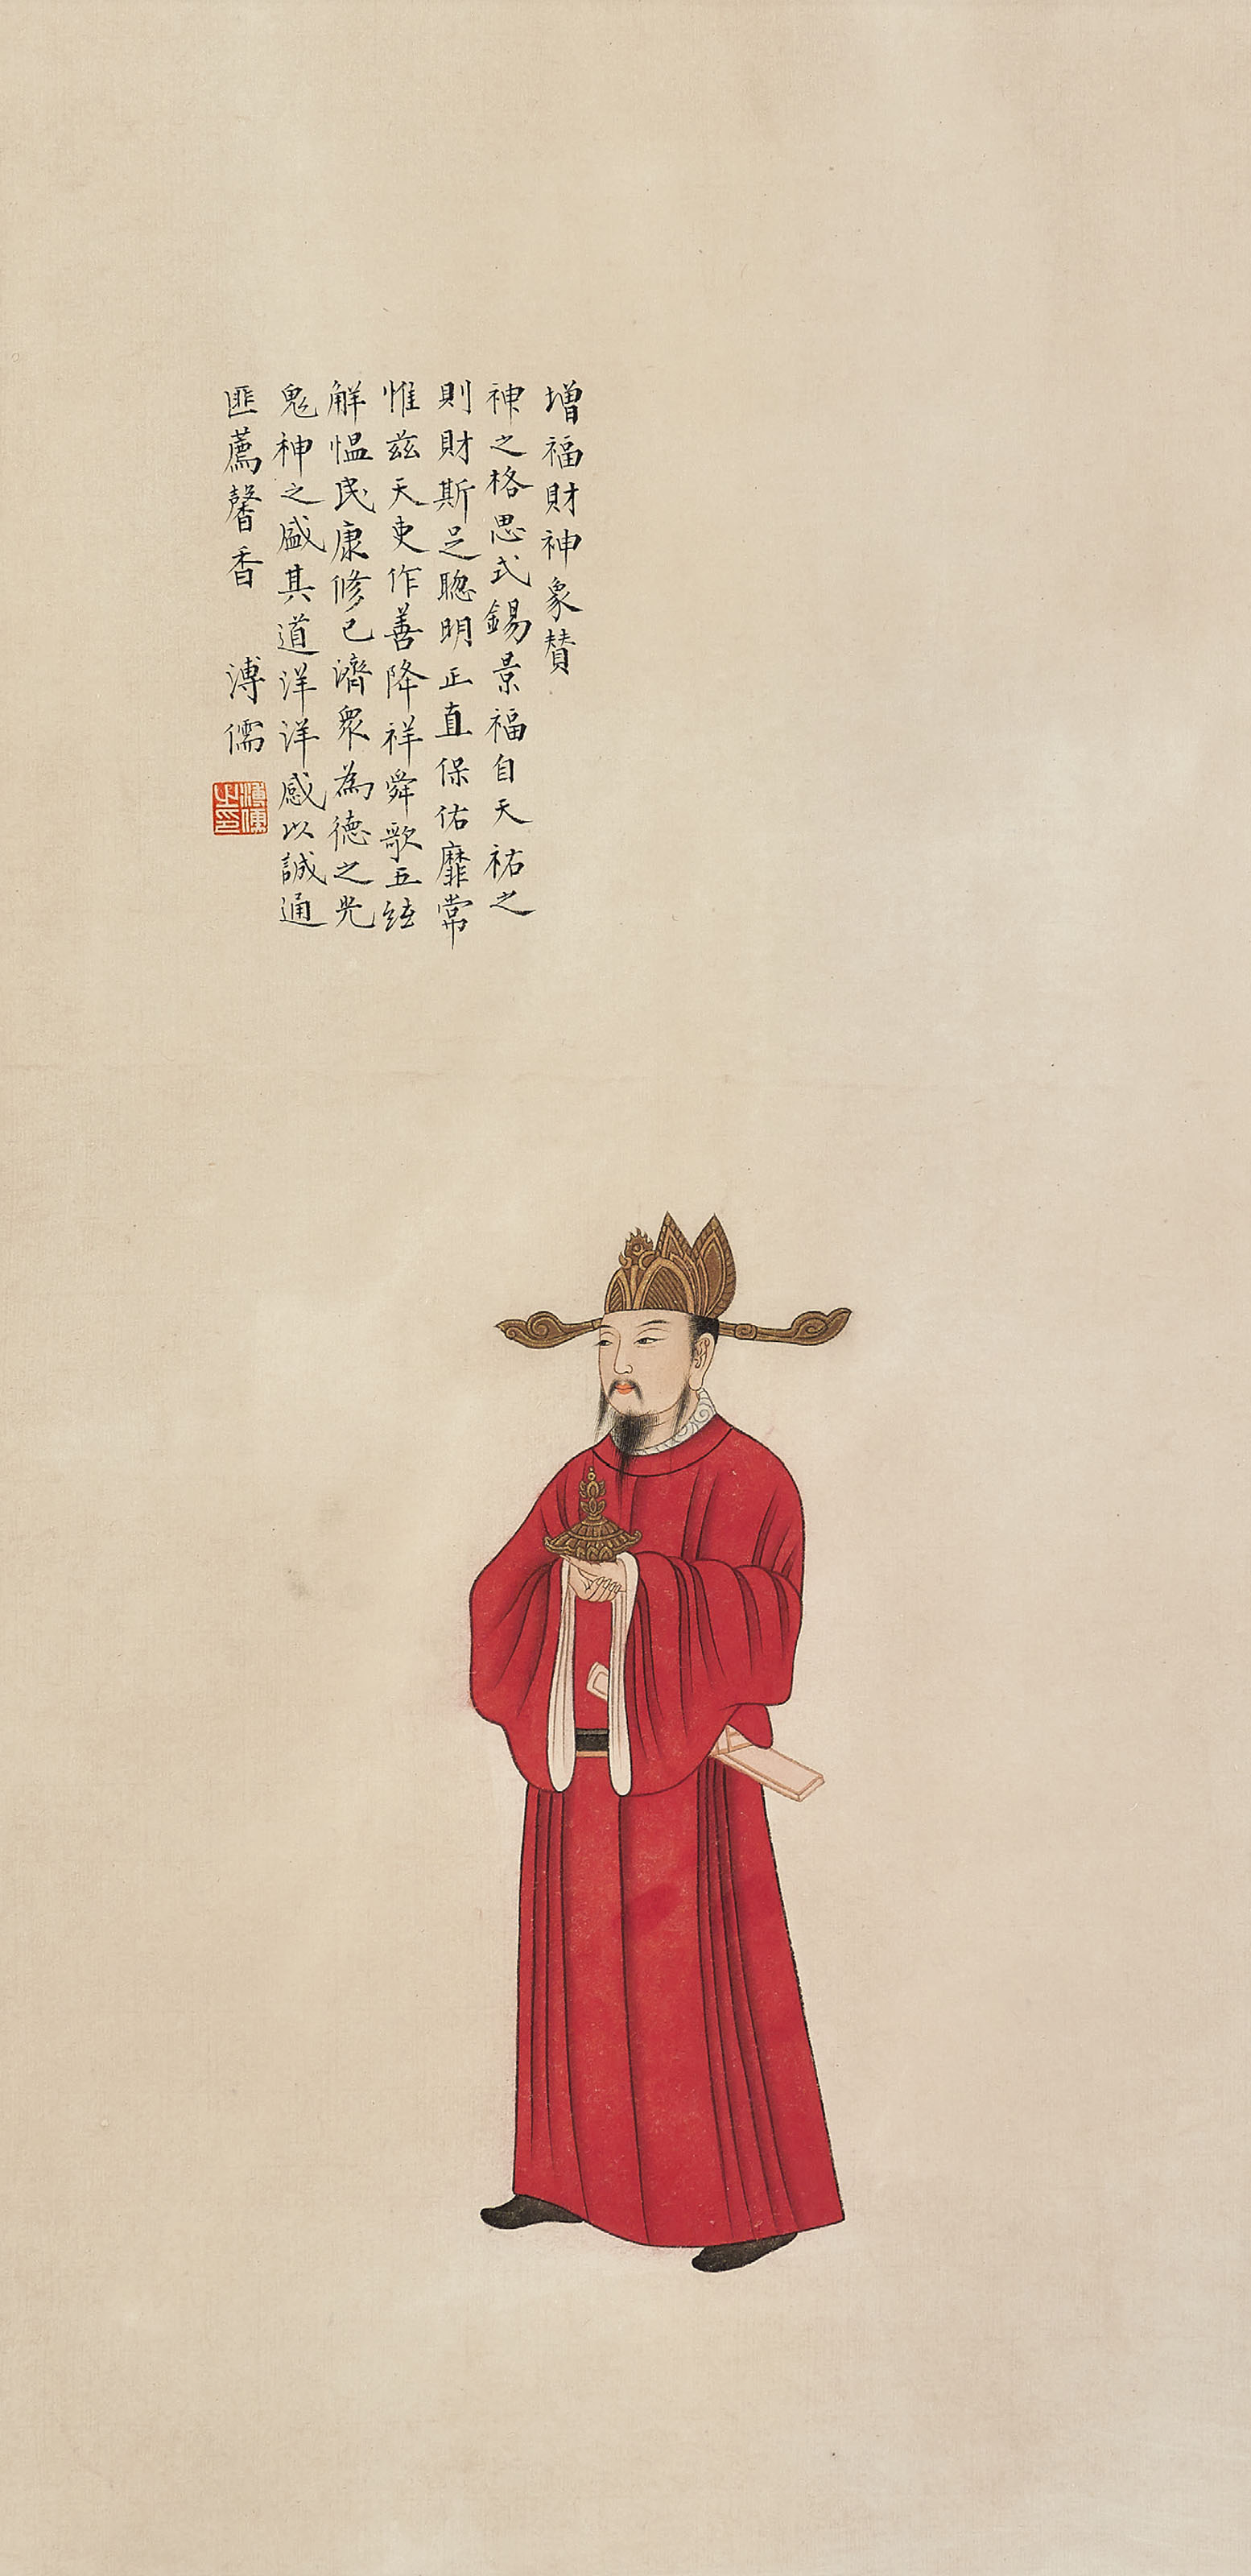 增福財神象賛
神之格思式錫景福自天祐之
則財斯足聰明正直保佑靡常
惟茲天吏作善降祥舜歌五絃
解慍民康修己濟眾為德之光
鬼神之盛其道洋洋感以誠通
匪薦馨香 溥儒
溥儒之印